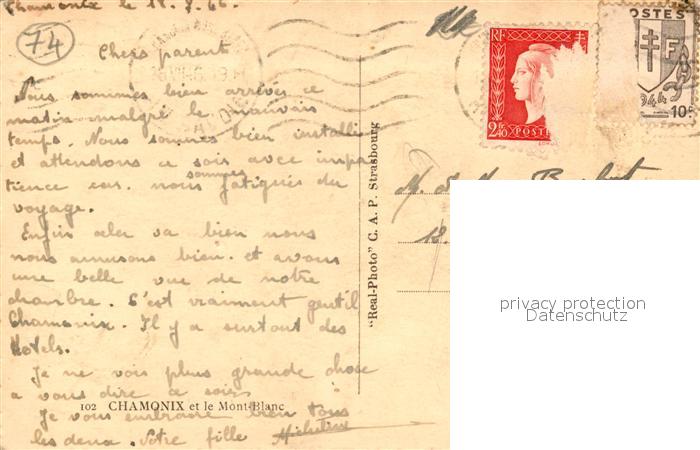 Chamonix le 18.8.46.
74
Chers parent
Nous sommes bien arrivés ce
matin malgré le mauvais
temps. Nous sommes bien installé
et attendons ce soir avec impa
tience car. nous sommes fatigués du
voyage.
Enfin cela va bien nous
nous amusons bien. et avons
une belle vue de notre
chambre. C'est vraiment gentil
Chamonix. Il y a surtout des
Hotels.
Je ne vois plus grande chose
a vous dire ce soir
102 CHAMONIX et le Mont-Blanc
Je vous embrasse bien tous
les deux. Votre fille Micheline
"Real-Photo" C. A. P. Strasbourg
RF
2f40 POSTE
POSTES
RF
1944
10c
M. &
18.
privacy protection
Datenschutz